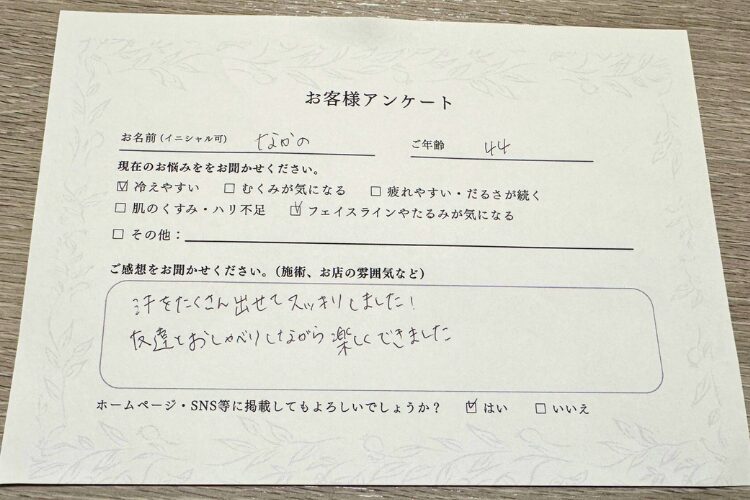 お客様アンケート
お名前(イニシャル可) なかの ご年齢 44
現在のお悩みををお聞かせください。
☑ 冷えやすい □ むくみが気になる □ 疲れやすい・だるさが続く
□ 肌のくすみ・ハリ不足 ☑ フェイスラインやたるみが気になる
□ その他：
ご感想をお聞かせください。(施術、お店の雰囲気など)
汗をたくさん出せてスッキリしました！
友達とおしゃべりしながら楽しくできました
ホームページ・SNS等に掲載してもよろしいでしょうか？ ☑ はい □ いいえ